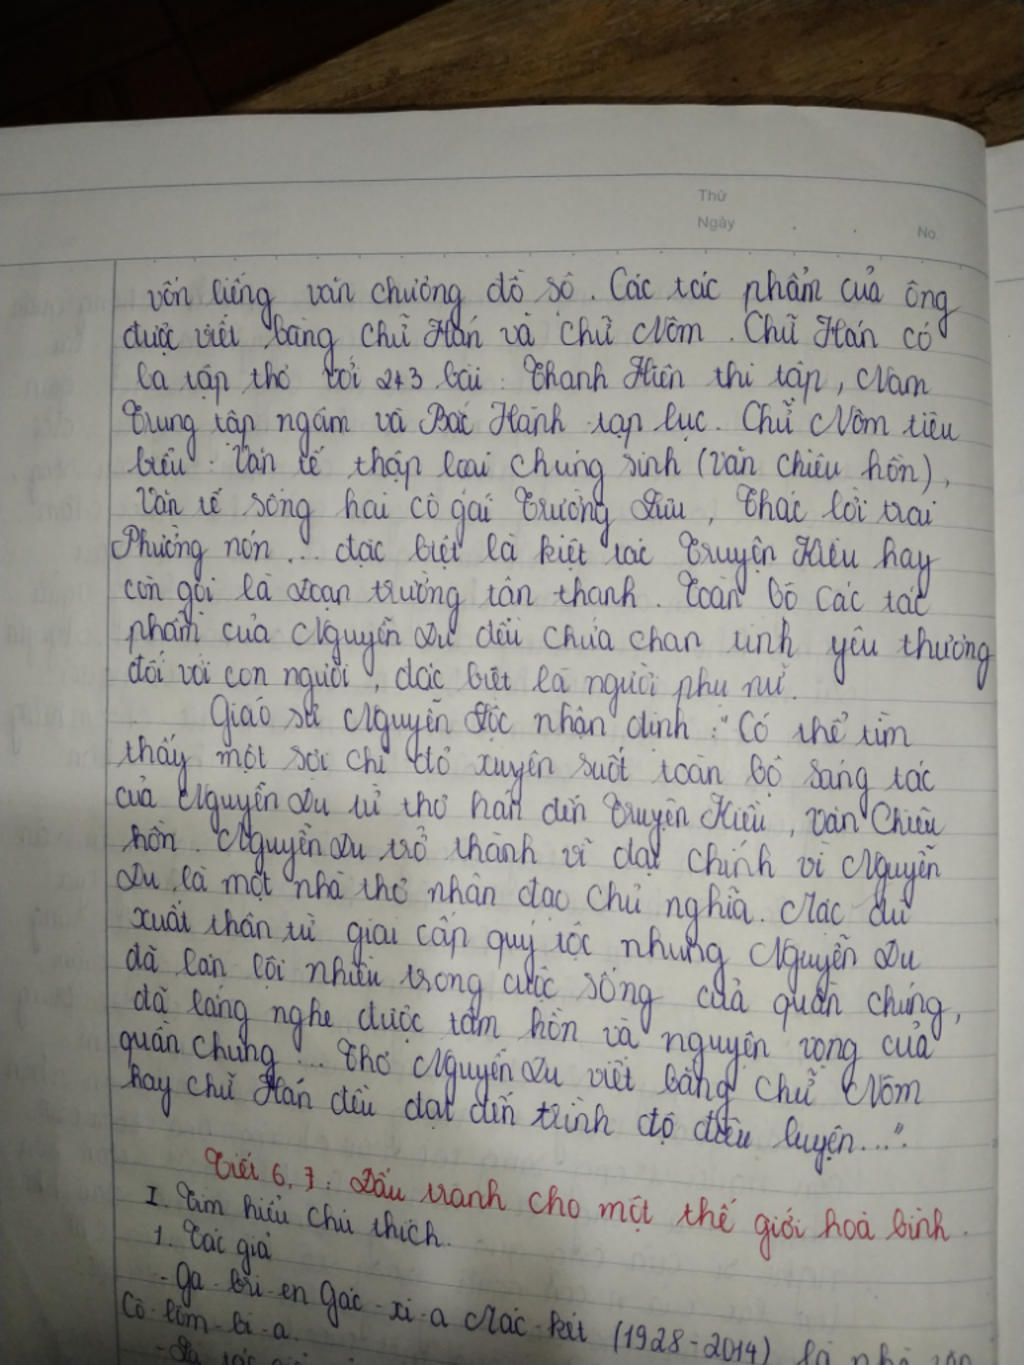 Thứ
Ngày
No.
vốn liếng văn chương đồ sộ. Các tác phẩm của ông
được viết bằng chữ Hán và chữ Nôm. Chữ Hán có
ba tập thơ với 243 bài: Thanh Hiên thi tập, Nam
Trung tập ngâm và Bắc Hành tạp lục. Chữ Nôm tiêu
biểu: Văn tế thập loại chúng sinh (Văn chiêu hồn),
Văn tế sống hai cô gái Trường Lưu, Thác lời trai
Phường nón... đặc biệt là kiệt tác Truyện Kiều hay
còn gọi là Đoạn trường tân thanh. Toàn bộ các tác
phẩm của Nguyễn Du đều chứa chan tình yêu thương
đối với con người, đặc biệt là người phụ nữ.
Giáo sư Nguyễn Lộc nhận định: "Có thể tìm
thấy một sợi chỉ đỏ xuyên suốt toàn bộ sáng tác
của Nguyễn Du từ thơ hán đến Truyện Kiều, Văn Chiêu
hồn. Nguyễn Du trở thành vĩ đại chính vì Nguyễn
Du là một nhà thơ nhân đạo chủ nghĩa. Mặc dù
xuất thân từ giai cấp quý tộc nhưng Nguyễn Du
đã lăn lội nhiều trong cuộc sống của quần chúng,
đã lắng nghe được tâm hồn và nguyện vọng của
quần chúng... Thơ Nguyễn Du viết bằng chữ Nôm
hay chữ Hán đều đạt đến trình độ điêu luyện...".
Tiết 6, 7: Đấu tranh cho một thế giới hoà bình.
I. Tìm hiểu chú thích.
1. Tác giả
- Ga-bri-en Gác-xi-a Mác-két (1928-2014) là nhà văn
Cô-lôm-bi-a.